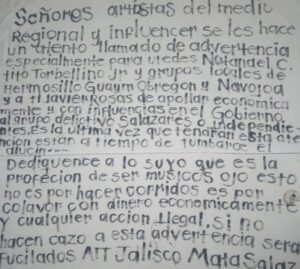 Señores artistas del medio
Regional y inpluencer se les hace
un atento llamado de advertencia
especialmente para utedes Natanael C.
tito Torbellino Jr y grupos locales de
Hermosillo Guaym Obregon y Navojoa
y a ti Javier Rosas de apollar economica
mente y con influencias en el Gobierno
al grupo delictivo Salazares o independie
ntes. Es la ultima vez que tendran esta ate
ncion estan a tiempo de tumbarce el
Dediquence a lo suyo que es la
profecion de ser musicos ojo esto
no es por hacer corridos es por
colavor con dinero economicamente
y cualquier accion Ilegal, si no
hacen cazo a esta advertencia sera
Fucilados ATT Jalisco Mata Salaz